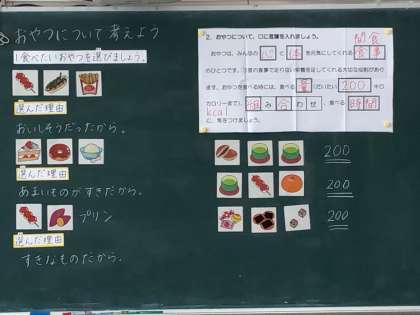 おやつについて考えよう
1 食べたいおやつを選びましょう。
選んだ理由
おいしそうだったから。
選んだ理由
あまいものがすきだから。
プリン
選んだ理由
すきなものだから。
2. おやつについて、□に言葉を入れましょう。
間食
おやつは、みんなの心と体を元気にしてくれる食事
のひとつです。3度の食事で足りない栄養を足してくれる大切な役割があり
ます。おやつを食べる時には、食べる量(だいたい200キロ
カロリーまで)、組み合わせ、食べる時間
kcal
に、気をつけましょう。
200
200
200